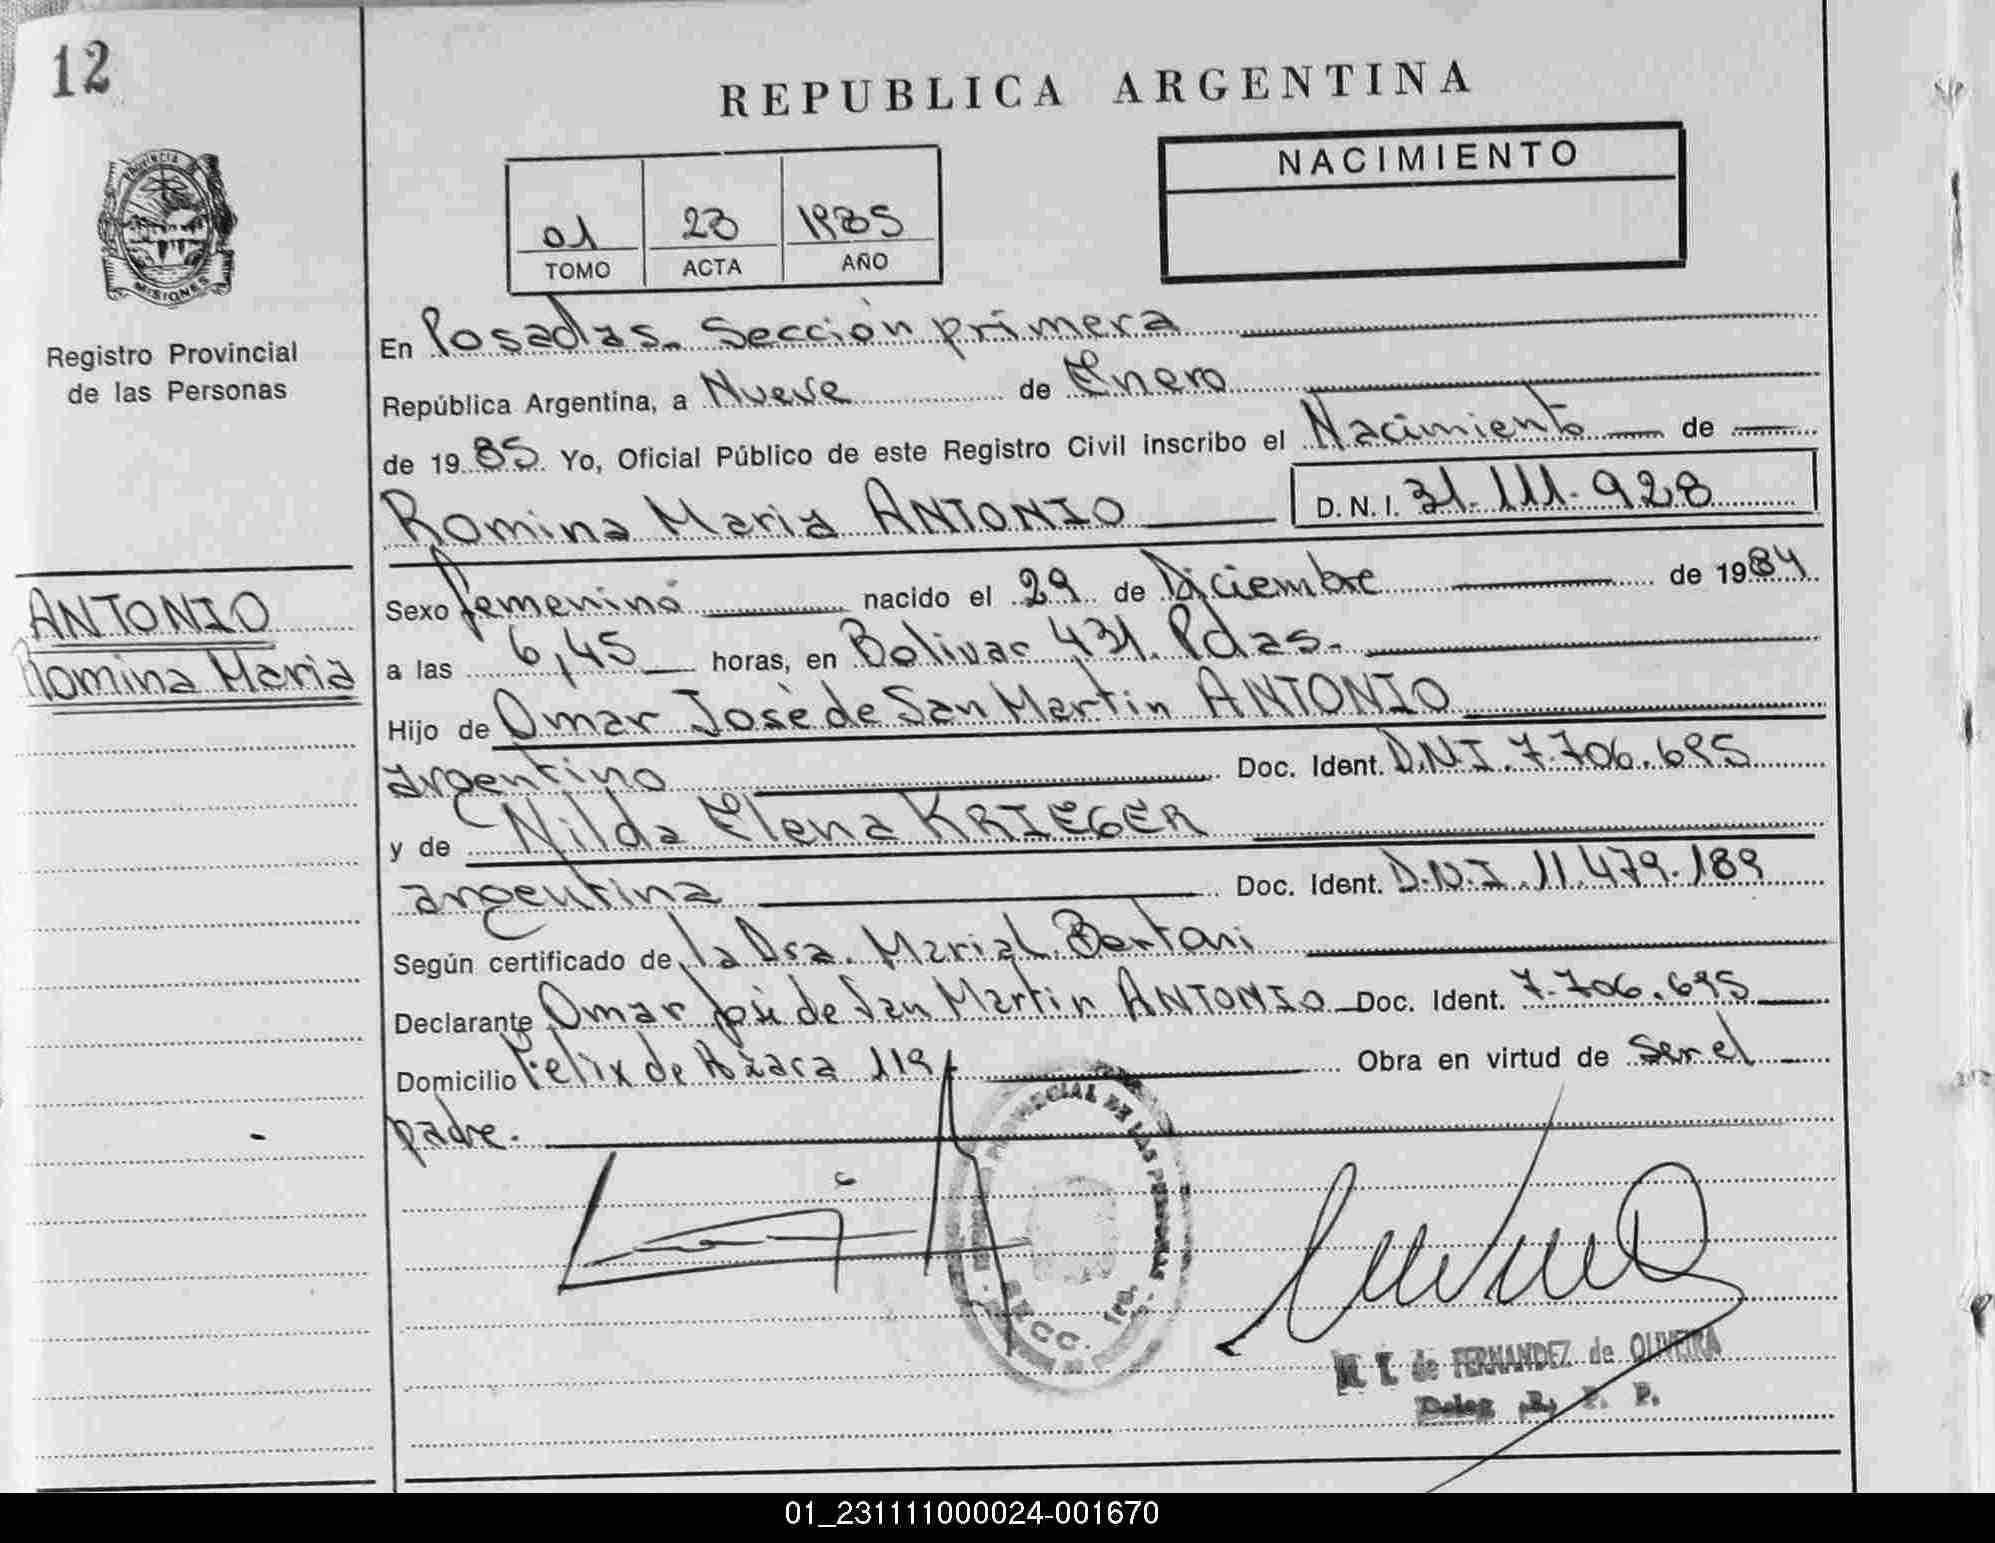 12
REPUBLICA ARGENTINA
PROVINCIA
MISIONES
Registro Provincial
de las Personas
NACIMIENTO
01 23 1985
TOMO ACTA AÑO
En Posadas. Sección primera
República Argentina, a Nueve de Enero
de 1985 Yo, Oficial Público de este Registro Civil inscribo el Nacimiento de
Romina Maria ANTONIO D.N.I. 31.111.928
ANTONIO
Romina Maria
Sexo femenino nacido el 29 de Diciembre de 1984
a las 6,45 horas, en Bolivar 431. Pdas.
Hijo de Omar José de San Martin ANTONIO
argentino Doc. Ident. D.N.I. 7.706.695
y de Nilda Elena KRIEGER
argentina Doc. Ident. D.N.I. 11.479.189
Según certificado de la Dra. Maria L. Bertoni
Declarante Omar José de San Martin ANTONIO Doc. Ident. 7.706.695
Domicilio Felix de Azara 119 Obra en virtud de ser el
padre.
PROVINCIAL DE LAS PERSONAS
SECC. 1ra.
M. T. de FERNANDEZ de OLIVEIRA
Deleg. R. P. P.
01_231111000024-001670